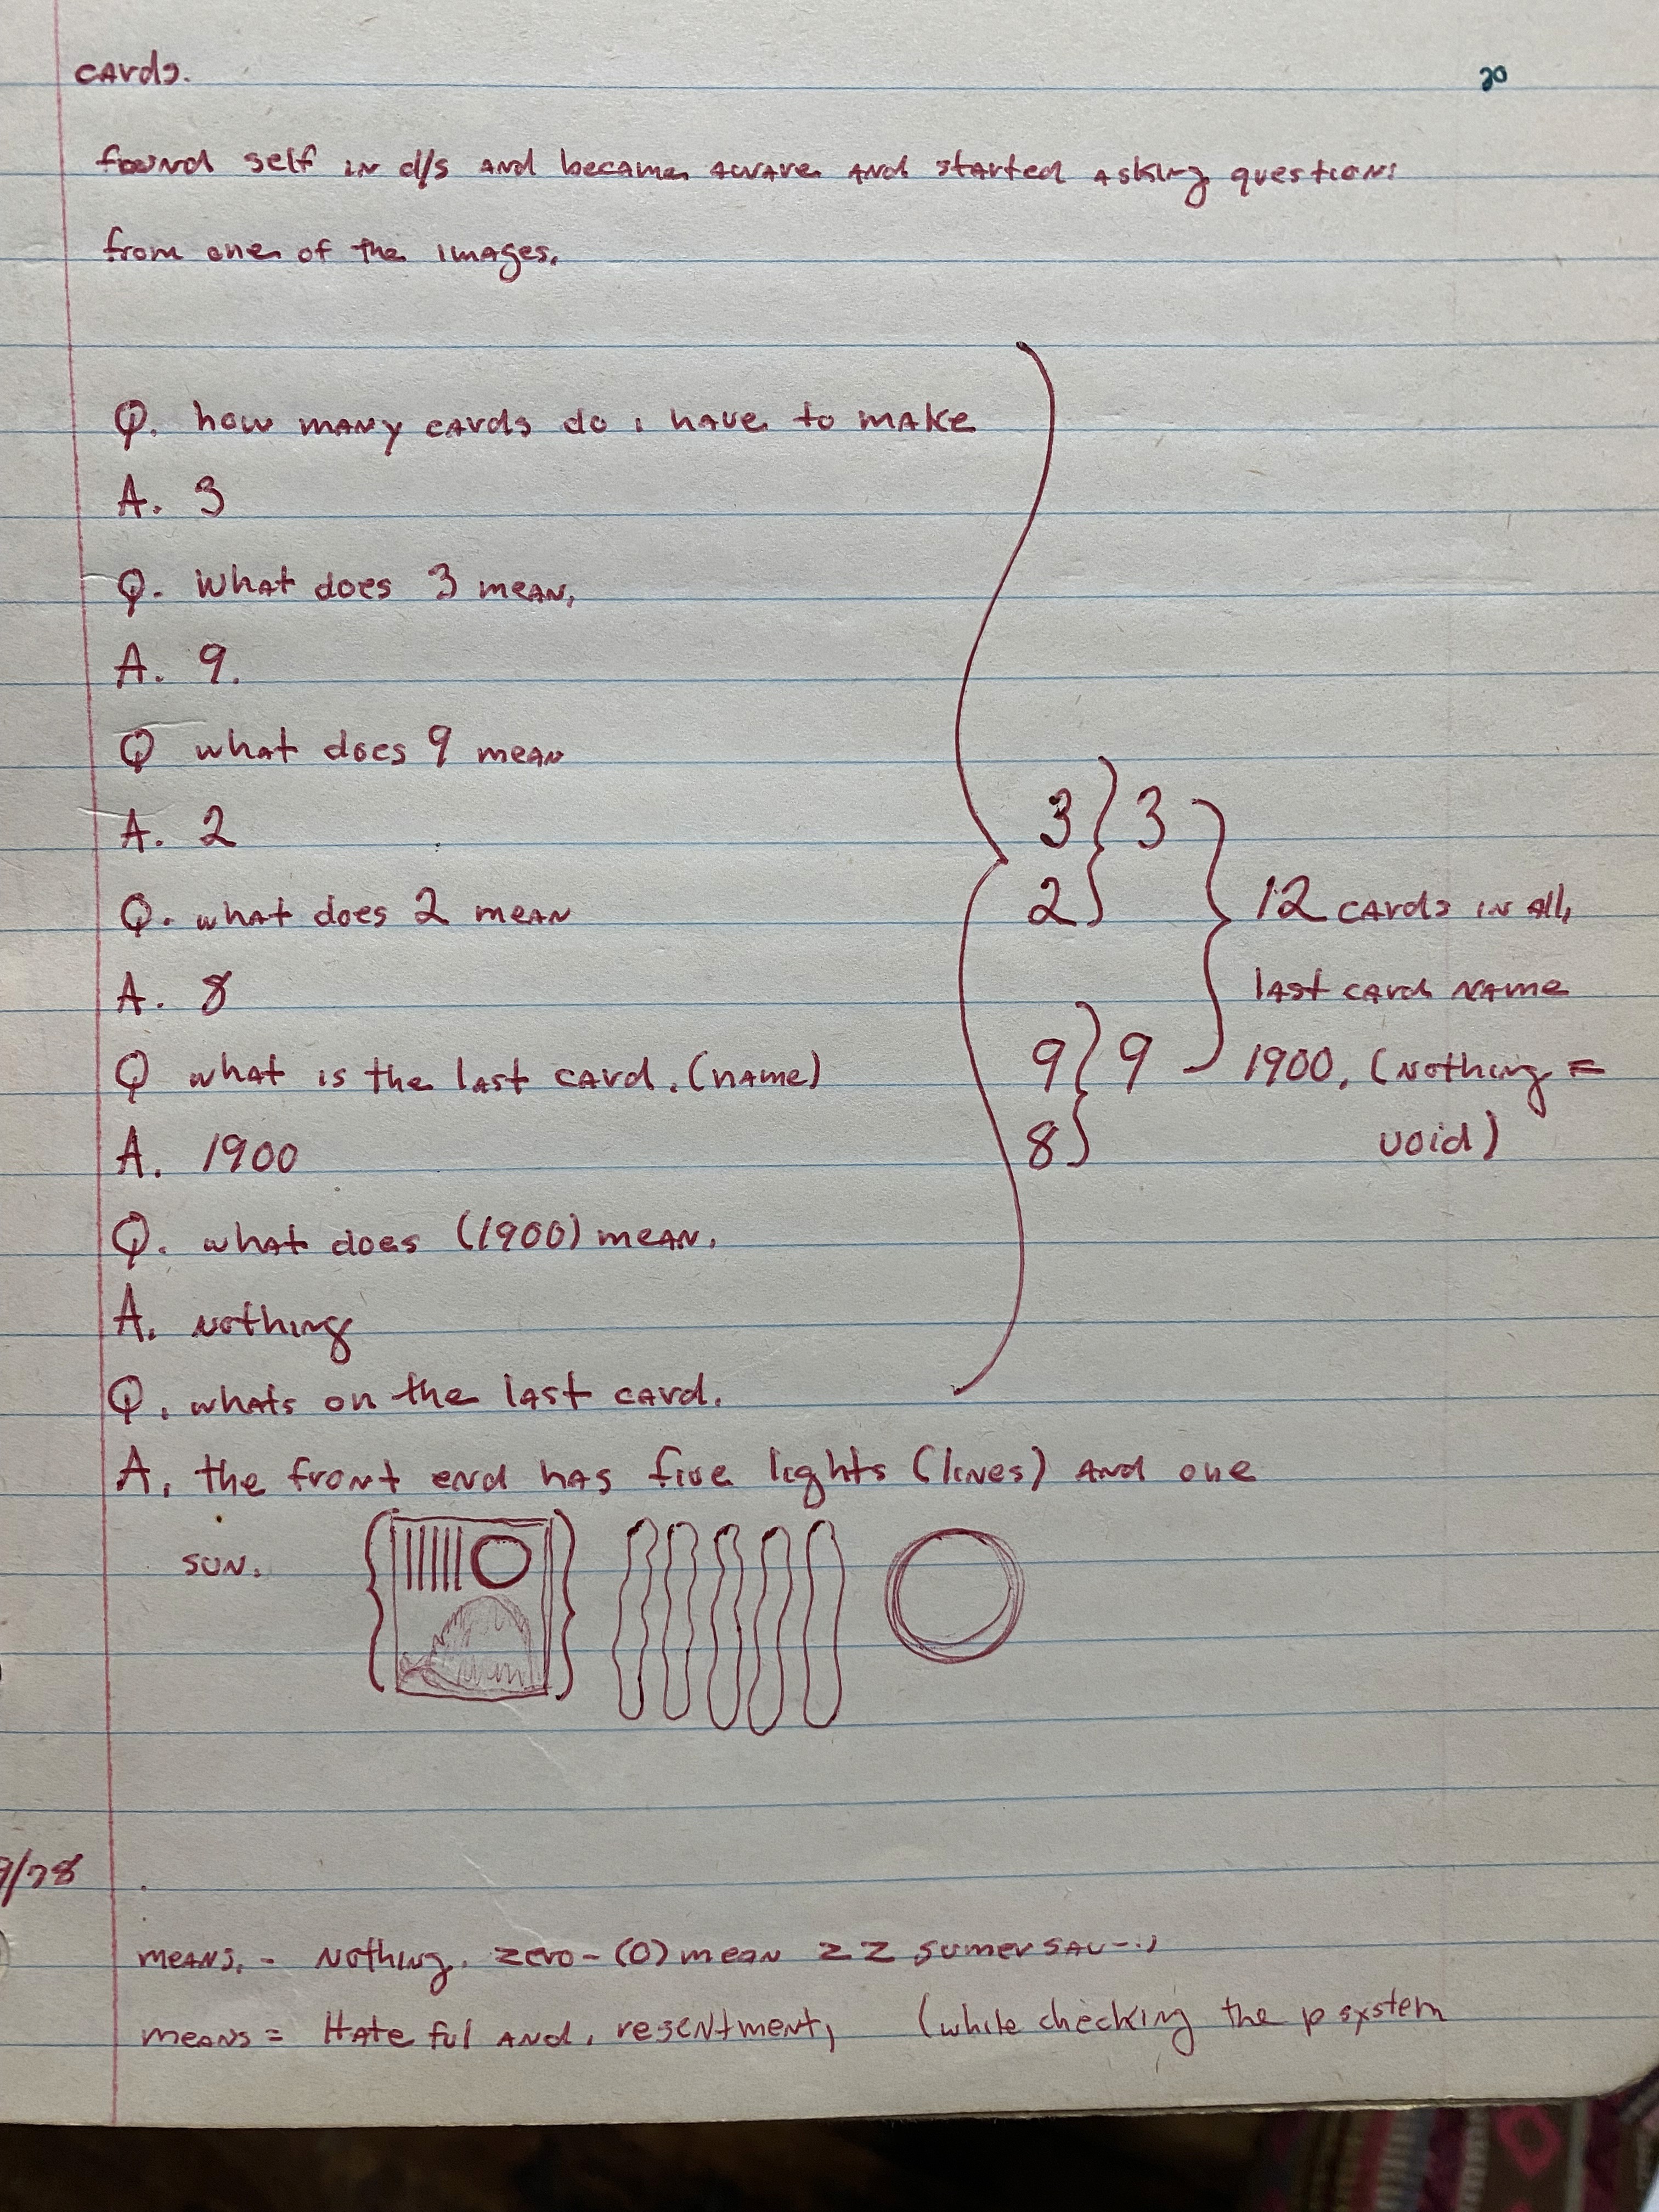 cards.
20
found self in d/s and became aware and started asking questions
from one of the images.
Q. how many cards do i have to make
A. 3
Q. What does 3 mean,
A. 9.
Q what does 9 mean
A. 2
Q. what does 2 mean
A. 8
Q what is the last card. (name)
A. 1900
Q. what does (1900) mean.
A. nothing
Q. whats on the last card.
3 } 3
2
9 } 9
8
12 cards in all,
last card name
1900. (nothing =
void)
A. the front end has five lights (lines) and one
sun.
9/78
means. - nothing. zero - (0) mean
means = Hateful and. resentment, (while checking the p system